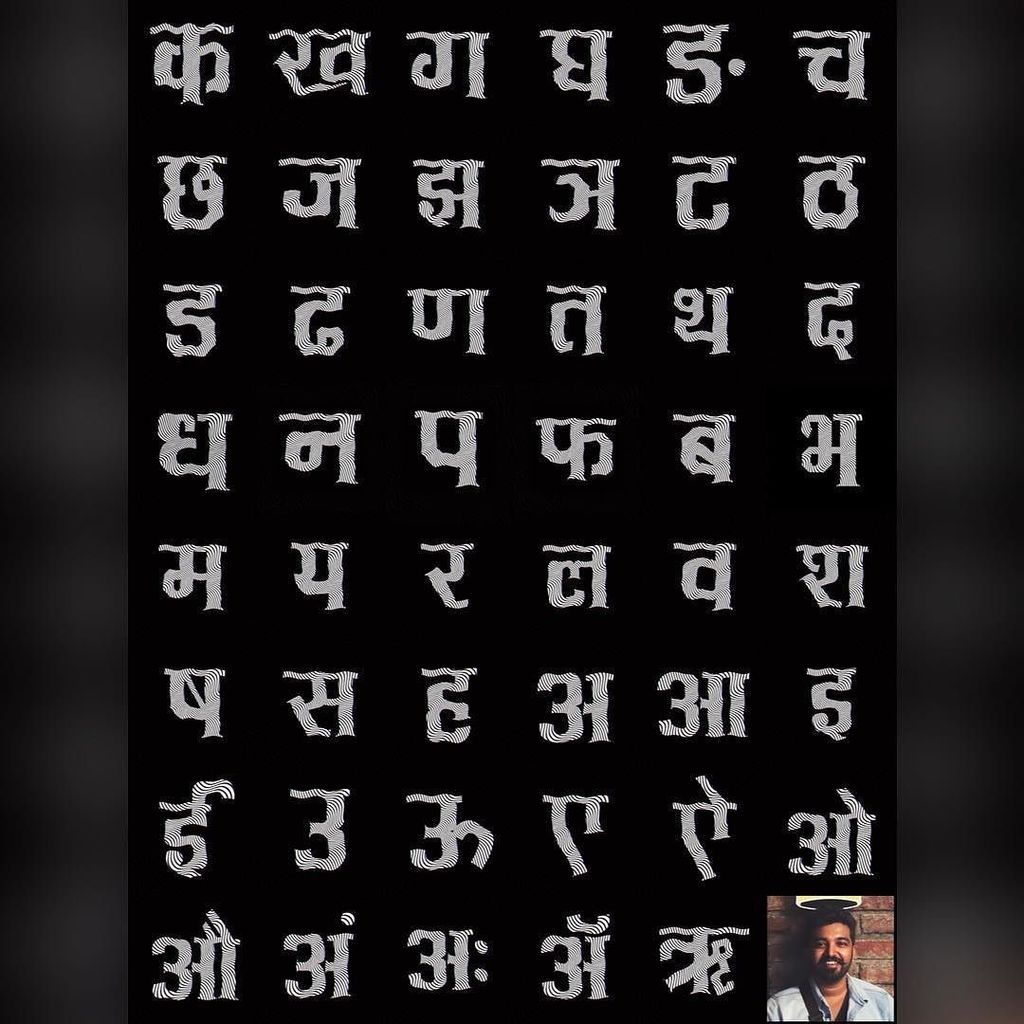 क ख ग घ ङ च
छ ज झ ञ ट ठ
ड ढ ण त थ द
ध न प फ ब भ
म य र ल व श
ष स ह अ आ इ
ई उ ऊ ए ऐ ओ
औ अं अः ॲ ऋ